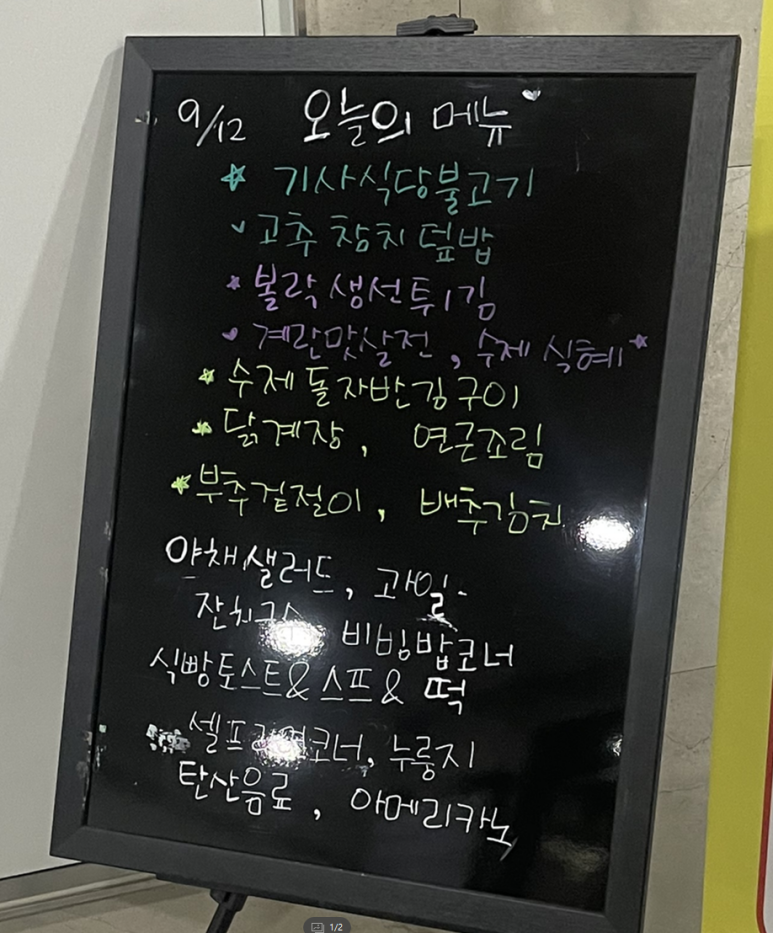 9/12 오늘의 메뉴
기사식당불고기
고추 참치 덮밥
볼락 생선튀김
계란맛살전, 수제 식혜
수제 돌자반김구이
닭계장, 연근조림
부추겉절이, 배추김치
야채샐러드, 과일
잔치국수 비빔밥코너
식빵토스트&스프&떡
셀프라면코너, 누룽지
탄산음료, 아메리카노
1/2